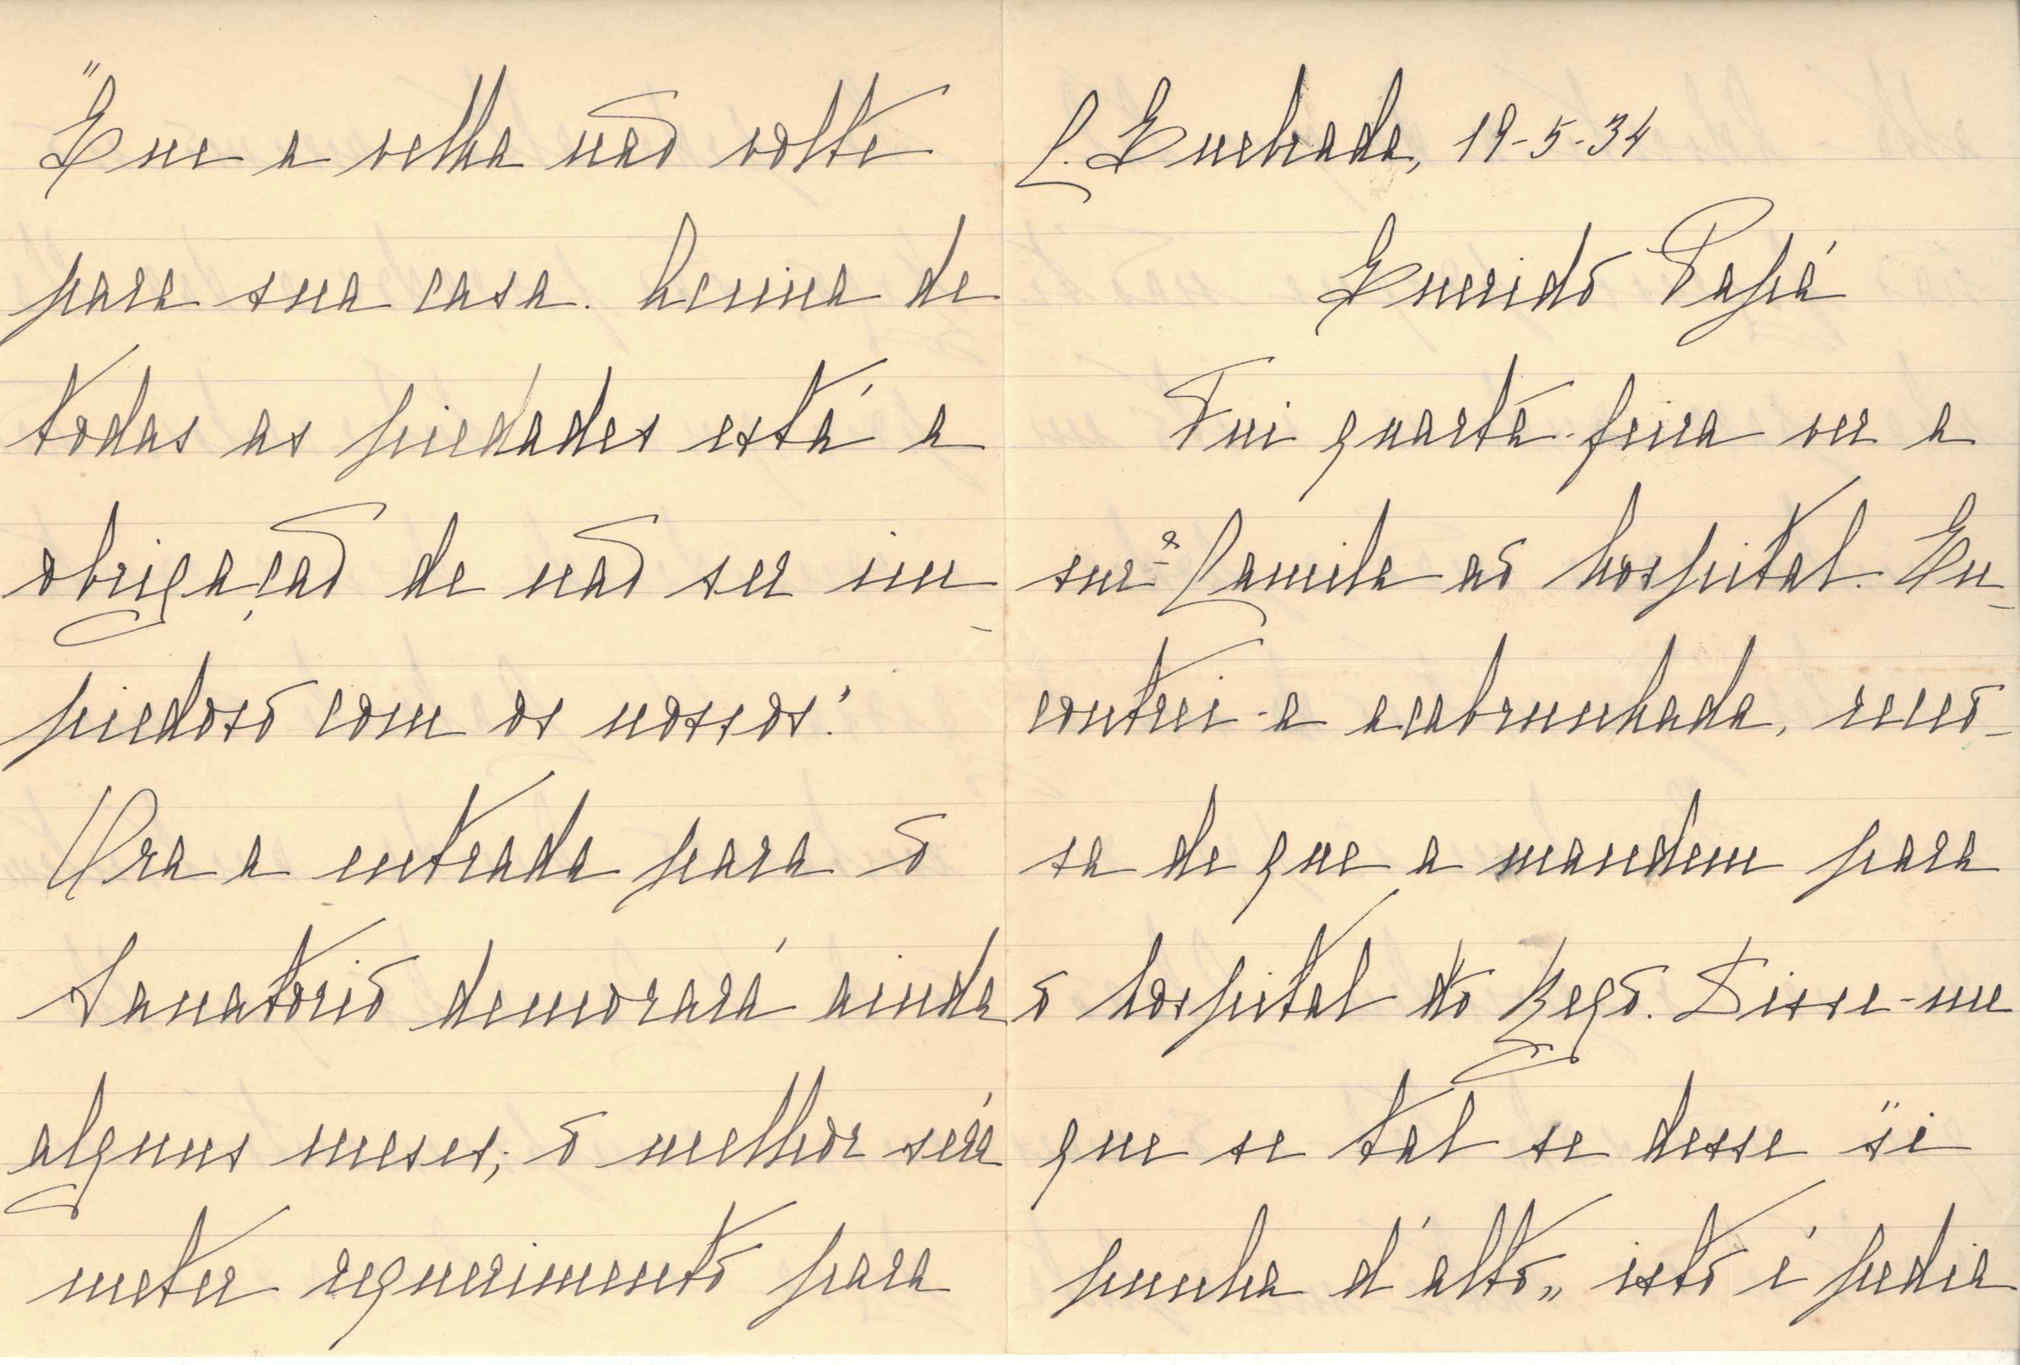 C. Quebrada, 19-5-34
Querido Papá
Fui quarta-feira ver a
snr.ª Camila ao hospital. En-
contrei-a acabrunhada, receo-
sa de que a mandem para
o hospital do Rego. Disse-me
que se tal se desse "se
punha d'alto" isto é pedia
"Que a velha não volte
para sua casa. Acima de
todas as piedades está a
obrigação de não ser im-
piedoso com os nossos."
Ora a entrada para o
Sanatorio demorará ainda
alguns meses; o melhor será
meter requerimento para